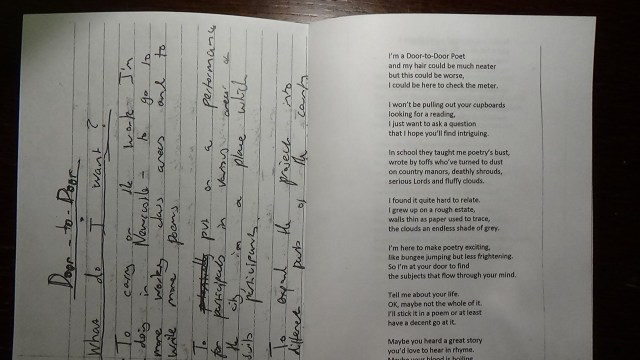 Door-to-Door
What do I want?
To carry on the work I'm
doing in Newcastle - to go to
more working class areas and to
write more poems
To put on a performance
for participants in various areas of
the city in a place which
suits participants.
To expand the project into
different parts of the
I'm a Door-to-Door Poet
and my hair could be much neater
but this could be worse,
I could be here to check the meter.
I won't be pulling out your cupboards
looking for a reading,
I just want to ask a question
that I hope you'll find intriguing.
In school they taught me poetry's bust,
wrote by toffs who've turned to dust
on country manors, deathly shrouds,
serious Lords and fluffy clouds.
I found it quite hard to relate.
I grew up on a rough estate,
walls thin as paper used to trace,
the clouds an endless shade of grey.
I'm here to make poetry exciting,
like bungee jumping but less frightening.
So I'm at your door to find
the subjects that flow through your mind.
Tell me about your life.
OK, maybe not the whole of it.
I'll stick it in a poem or at least
have a decent go at it.
Maybe you heard a great story
you'd love to hear in rhyme.
Maybe your blood is boiling